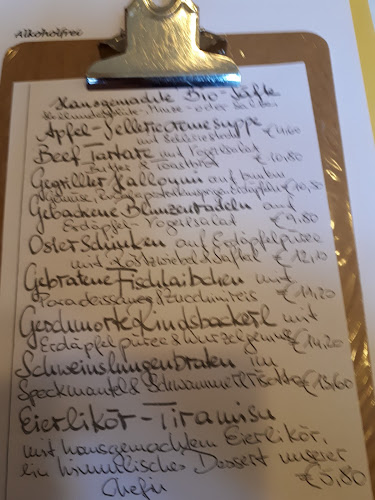 Alkoholfrei
Hausgemachte Bio-Säfte
Apfel-Selleriecremesuppe
mit
Beef Tartare mit Vogerlsalat
Butter & Toastbrot € 10,80
Gegrillter Halloumi auf buntem
€ 10,50
Gebackene Blunzenradeln auf
Erdäpfel-Vogerlsalat € 9,80
Osterschinken auf Erdäpfelpüree
mit Röstzwiebel & Saftl € 12,10
Gebratene Fischlaibchen mit
Paradeissauce & Zucchinireis € 11,20
Geschmorte Rindsbackerl mit
Erdäpfelpüree & Wurzelgemüse € 14,20
Schweinslungenbraten im
Speckmantel & Schwammerl € 13,60
Eierlikör-Tiramisu
mit hausgemachtem Eierlikör,
ein himmlisches Dessert unserer
Chefin € 5,80